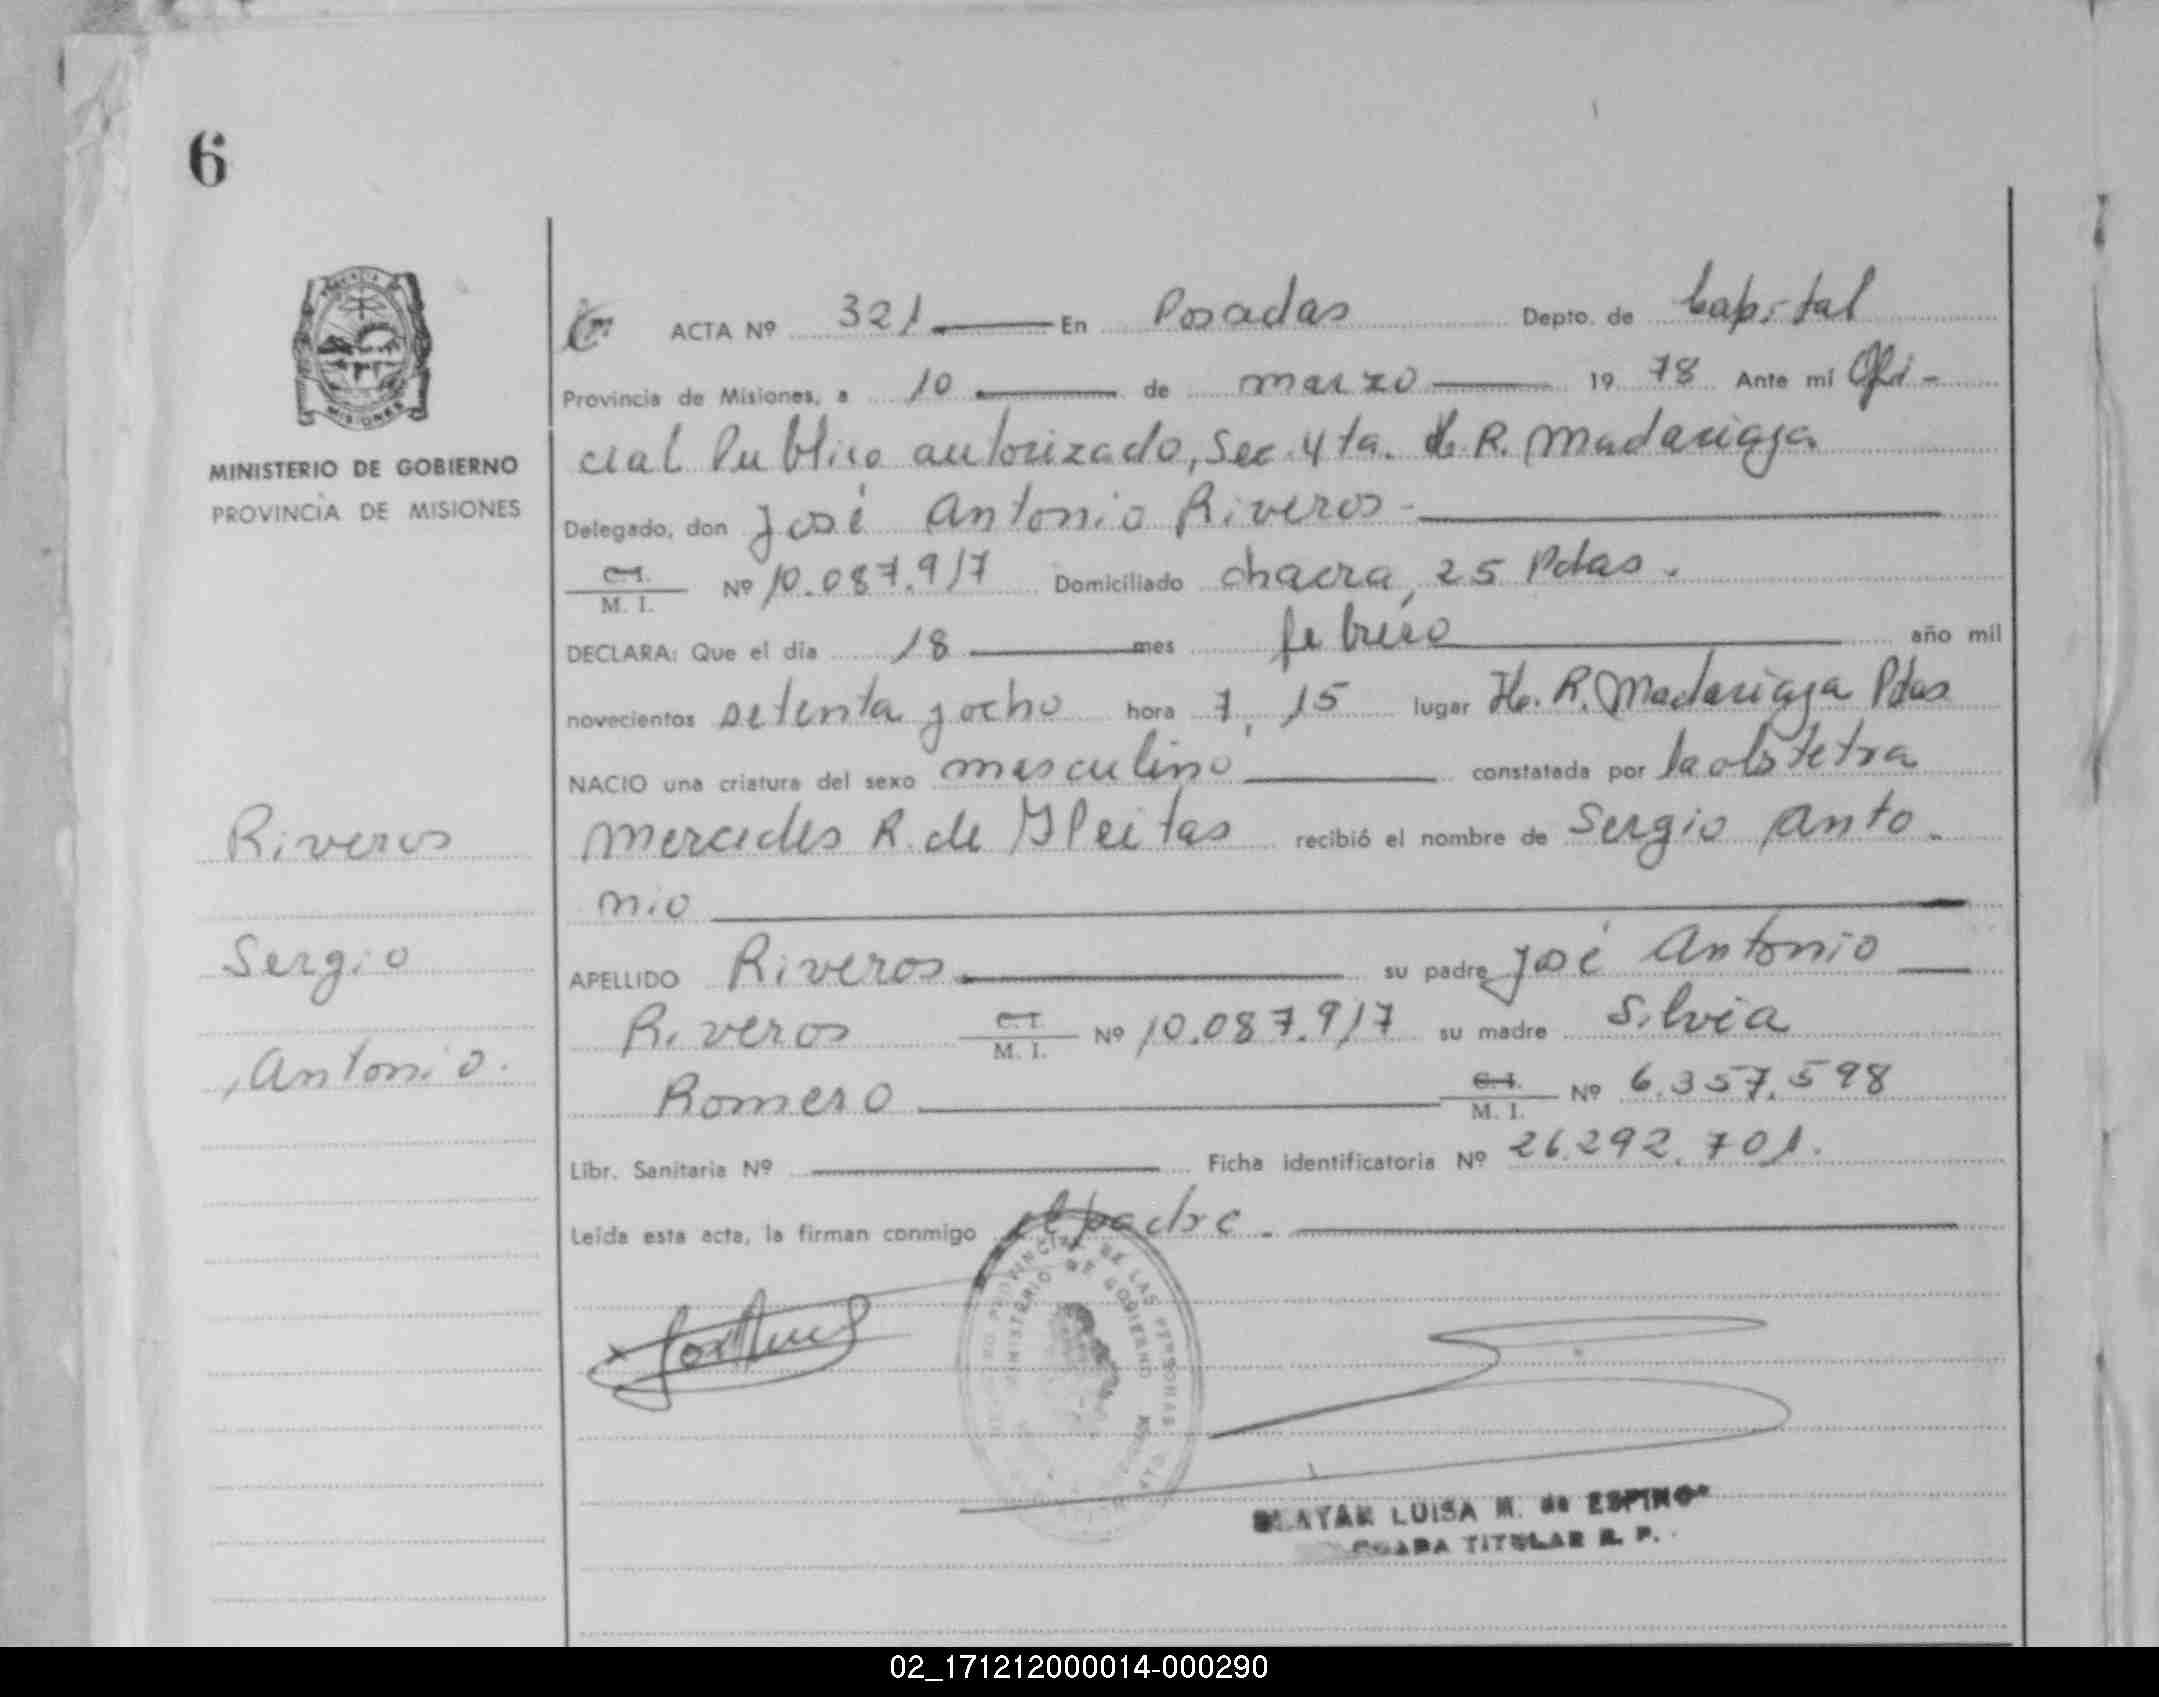 6
MINISTERIO DE GOBIERNO
PROVINCIA DE MISIONES
ACTA Nº 321 En Posadas Depto. de Capital
Provincia de Misiones, a 10 de marzo 19 78 Ante mi Ofi-
cial Publico autorizado, Sec. 4ta. H. R. Madariaga
Delegado, don José Antonio Riveros -
C.I. M. I. Nº 10.087.917 Domiciliado chacra, 25 Pdas.
DECLARA: Que el dia 18 mes febrero año mil
novecientos setenta y ocho hora 7, 15 lugar Ho. R. Madariaga Pdas
NACIO una criatura del sexo masculino constatada por la obstetra
Mercedes R. de Gleitas recibió el nombre de Sergio Anto-
nio
APELLIDO Riveros su padre José Antonio
Riveros C.I. M. I. Nº 10.087.917 su madre Silvia
Romero C.I. M. I. Nº 6.357.598
Libr. Sanitaria Nº Ficha identificatoria Nº 26.292.701.
Leida esta acta, la firman conmigo el padre.
Riveros
Sergio
Antonio.
MINISTERIO DE GOBIERNO
DE LAS PERSONAS
LUISA M. de ESPINO
TITULAR R. P.
02_171212000014-000290